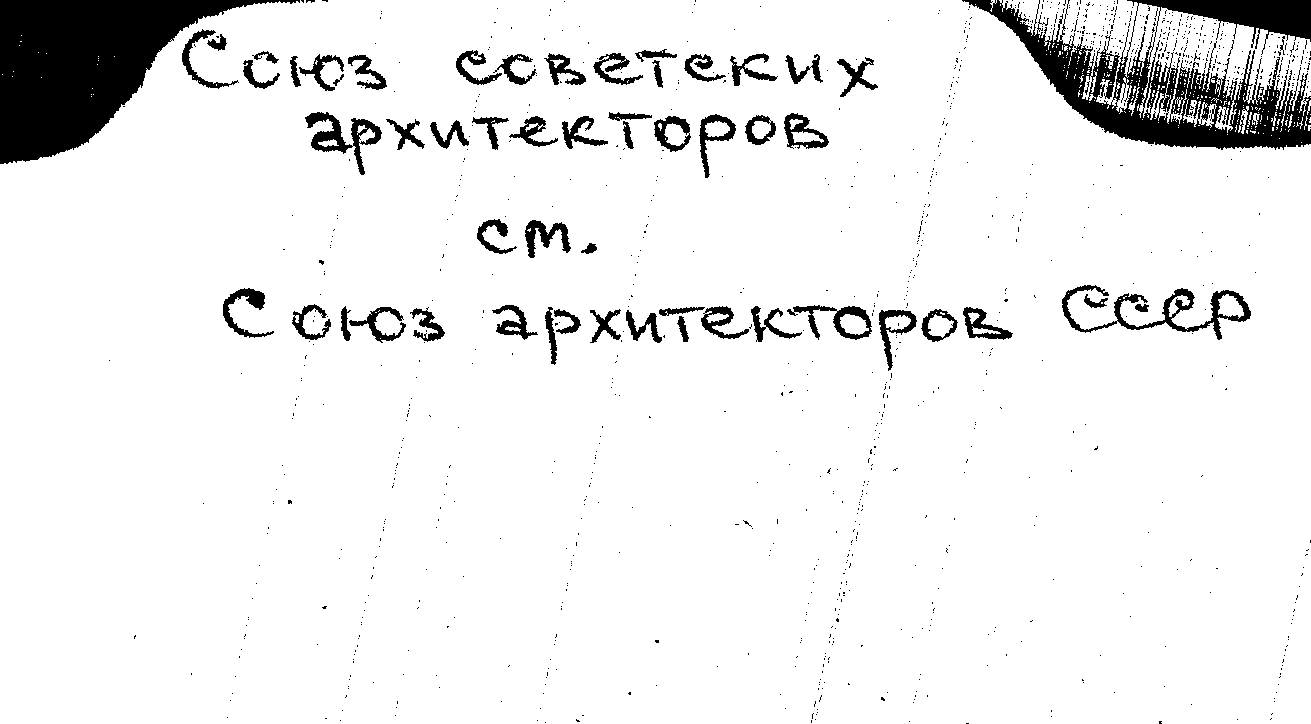 Союз советских
архитекторов
см.
Союз архитекторов СССР